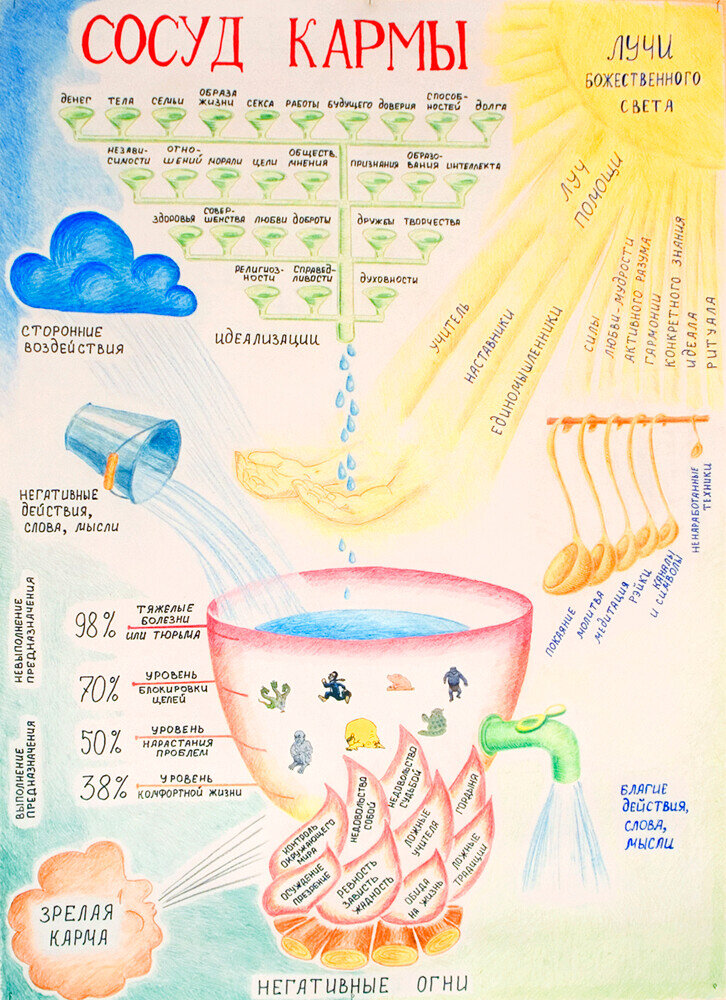 СОСУД КАРМЫ
ЛУЧИ
БОЖЕСТВЕННОГО
СВЕТА
ДЕНЕГ
ТЕЛА
СЕМЬИ
ОБРАЗА
ЖИЗНИ
СЕКСА
РАБОТЫ
БУДУЩЕГО
ДОВЕРИЯ
СПОСОБ-
НОСТЕЙ
ДОЛГА
НЕЗАВИ-
СИМОСТИ
ОТНО-
ШЕНИЙ
МОРАЛИ
ЦЕЛИ
ОБЩЕСТВ.
МНЕНИЯ
ПРИЗНАНИЯ
ОБРАЗО-
ВАНИЯ
ИНТЕЛЛЕКТА
ЗДОРОВЬЯ
СОВЕР-
ШЕНСТВА
ЛЮБВИ
ДОБРОТЫ
ДРУЖБЫ
ТВОРЧЕСТВА
РЕЛИГИОЗ-
НОСТИ
СПРАВЕД-
ЛИВОСТИ
ДУХОВНОСТИ
ИДЕАЛИЗАЦИИ
ЛУЧ
ПОМОЩИ
УЧИТЕЛЬ
НАСТАВНИКИ
ЕДИНОМЫШЛЕННИКИ
СИЛЫ
ЛЮБВИ-МУДРОСТИ
АКТИВНОГО РАЗУМА
ГАРМОНИИ
КОНКРЕТНОГО ЗНАНИЯ
ИДЕАЛА
РИТУАЛА
СТОРОННИЕ
ВОЗДЕЙСТВИЯ
НЕГАТИВНЫЕ
ДЕЙСТВИЯ,
СЛОВА, МЫСЛИ
ПОКАЯНИЕ
МОЛИТВА
МЕДИТАЦИЯ
РЭЙКИ
КАНАЛЫ
И СИМВОЛЫ
НЕНАРАБОТАННЫЕ
ТЕХНИКИ
НЕВЫПОЛНЕНИЕ
ПРЕДНАЗНАЧЕНИЯ
98%
ТЯЖЕЛЫЕ
БОЛЕЗНИ
ИЛИ ТЮРЬМА
70%
УРОВЕНЬ
БЛОКИРОВКИ
ЦЕЛЕЙ
ВЫПОЛНЕНИЕ
ПРЕДНАЗНАЧЕНИЯ
50%
УРОВЕНЬ
НАРАСТАНИЯ
ПРОБЛЕМ
38%
УРОВЕНЬ
КОМФОРТНОЙ ЖИЗНИ
БЛАГИЕ
ДЕЙСТВИЯ,
СЛОВА,
МЫСЛИ
КОНТРОЛЬ
ОКРУЖАЮЩЕГО
МИРА
НЕДОВОЛЬСТВО
СОБОЙ
НЕДОВОЛЬСТВО
СУДЬБОЙ
ЛОЖНЫЕ
УЧИТЕЛЯ
ГОРДЫНЯ
ОСУЖДЕНИЕ
ПРЕЗРЕНИЕ
РЕВНОСТЬ
ЗАВИСТЬ
ЖАДНОСТЬ
ОБИДА
НА ЖИЗНЬ
ЛОЖНЫЕ
ТРАДИЦИИ
ЗРЕЛАЯ
КАРМА
НЕГАТИВНЫЕ ОГНИ